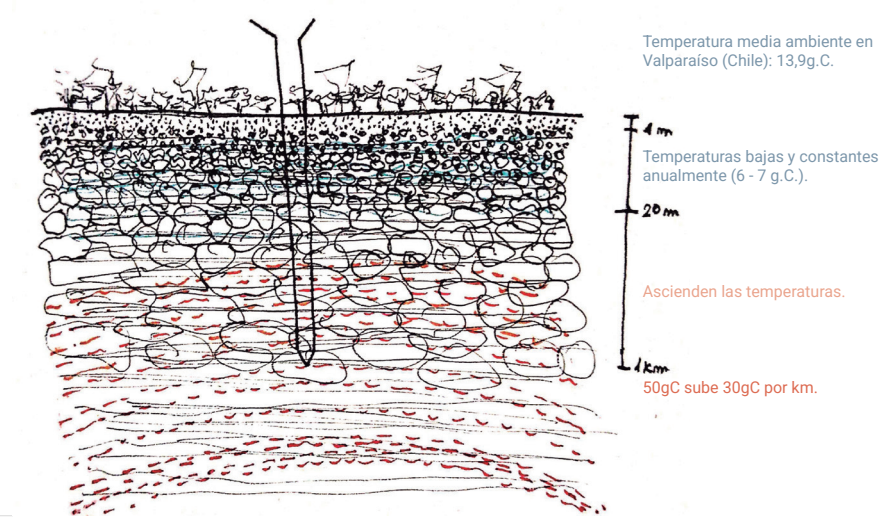 Temperatura media ambiente en
Valparaíso (Chile): 13,9g.C.
1m
Temperaturas bajas y constantes
anualmente (6 - 7 g.C.).
20m
Ascienden las temperaturas.
1Km
50gC sube 30gC por km.